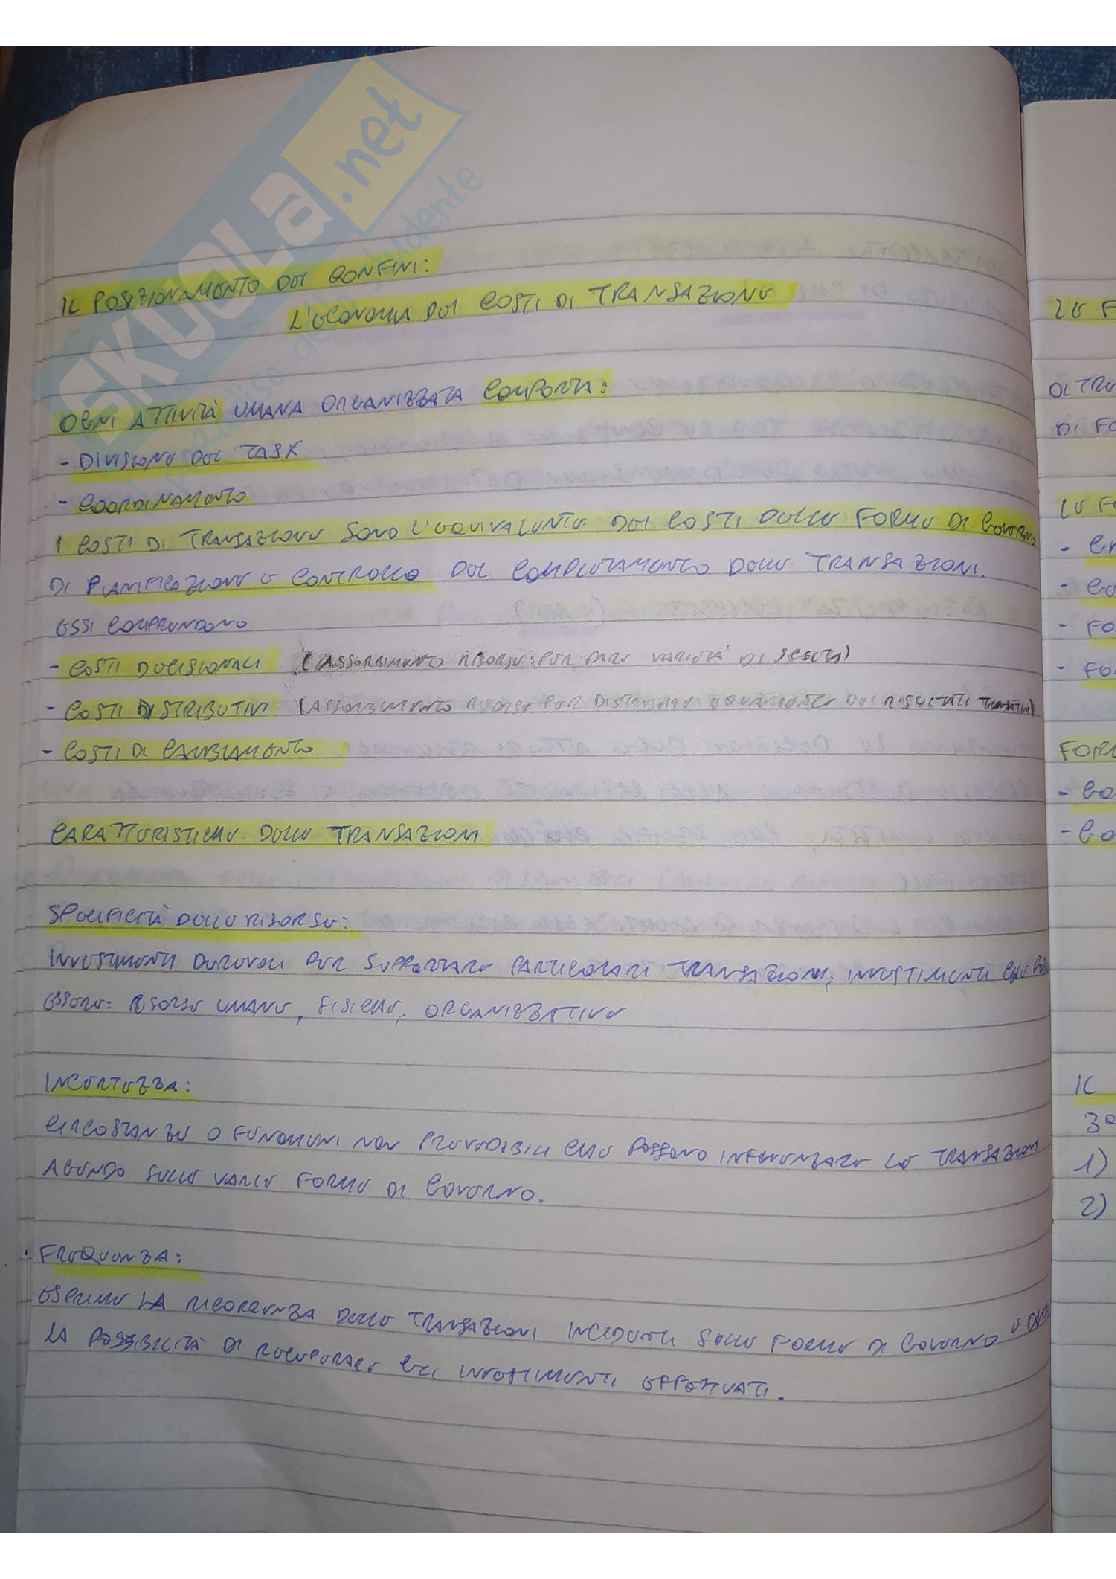 SKUOLA.net
IL POSIZIONAMENTO DEI CONFINI:
L'ECONOMIA DEI COSTI DI TRANSAZIONE
OGNI ATTIVITÀ UMANA ORGANIZZATA COMPORTA:
- DIVISIONE DEL TASK
- COORDINAMENTO
I COSTI DI TRANSAZIONE SONO L'EQUIVALENTE DEI COSTI DELLE FORME DI GOVERNO
DI PIANIFICAZIONE E CONTROLLO DEL COMPLETAMENTO DELLE TRANSAZIONI.
ESSI COMPRENDONO
- COSTI DECISIONALI (ASSORBIMENTO RISORSE PER FARE VARIETÀ DI SCELTA)
- COSTI DISTRIBUTIVI (ASSORBIMENTO RISORSE PER DEI RISULTATI
- COSTI DI CAMBIAMENTO
CARATTERISTICHE DELLE TRANSAZIONI
SPECIFICITÀ DELLE RISORSE:
INVESTIMENTI DUREVOLI PER SUPPORTARE PARTICOLARI TRANSAZIONI, INVESTIMENTI CHE
ESSERE: RISORSE UMANE, FISICHE, ORGANIZZATIVE
INCERTEZZA:
CIRCOSTANZE O FENOMENI NON PREVEDIBILI CHE POSSONO INFLUENZARE LE TRANSAZIONI
AGENDO SULLE VARIE FORME DI GOVERNO.
FREQUENZA:
ESPRIME LA RICORRENZA DELLE TRANSAZIONI INCIDENTI SULLE FORME DI GOVERNO E
LA POSSIBILITÀ DI RECUPERARE GLI INVESTIMENTI EFFETTUATI.
LE F
OLTRE
DI FO
LE FO
- CO
- FO
- FO
FORM
- CO
- CO
IL
1)
2)